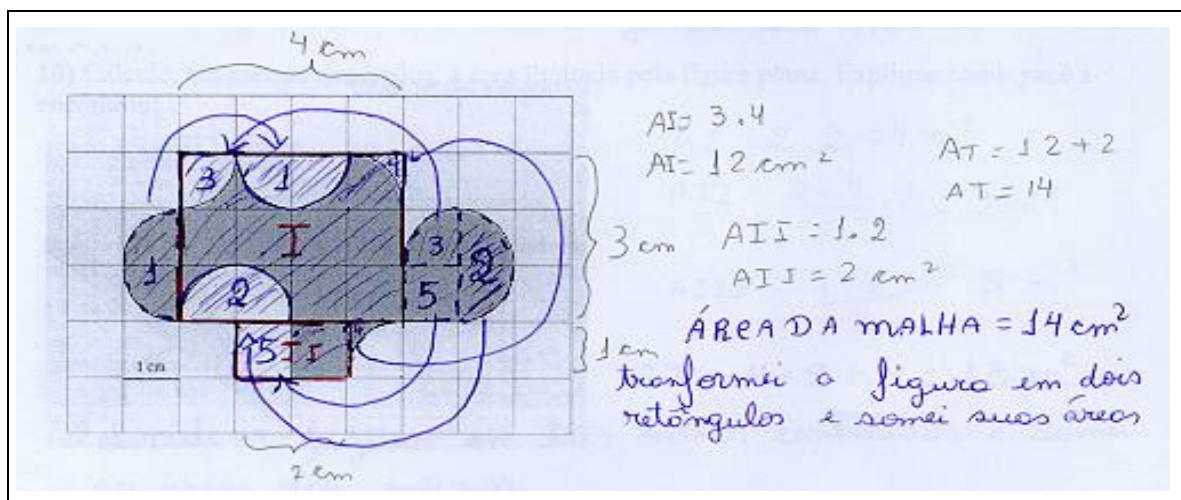 4 cm
10) Calcule, em
a área limitada pela figura plana. Explique como você a
encontrou
3
1
4
I
1
3
2
2
5
5
II
1 cm
2 cm
3 cm
1 cm
AI= 3.4
AI= 12 cm²
AT = 12 + 2
AT = 14
AII = 1.2
AII = 2 cm²
ÁREA DA MALHA = 14 cm²
transformei a figura em dois
retângulos e somei suas áreas